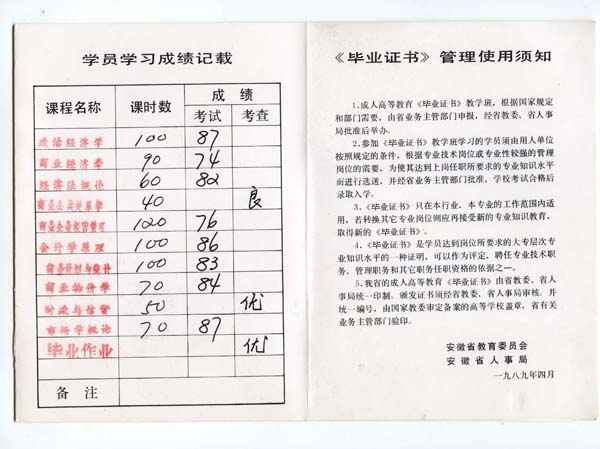 学员学习成绩记载
课程名称 课时数 成绩
考试 考查
政治经济学 100 87
商业经济学 90 74
经济法概论 60 82
40 良
120 76
会计学原理 100 86
100 83
商业物价学 70 84
财政与信贷 50 优
市场学概论 70 87
毕业作业 优
备注
《毕业证书》管理使用须知
1.成人高等教育《毕业证书》教学班，根据国家规定
和部门需要，由省业务主管部门申报，经省教委、省人事
局批准后举办。
2.参加《毕业证书》教学班学习的学员须由用人单位
按照规定的条件，根据专业技术岗位或专业性较强的管理
岗位的需要，为使其达到上岗任职所要求的专业知识水平
而进行选送，并经省业务主管部门批准，学校考试合格后
录取入学。
3.《毕业证书》只在本行业、本专业的工作范围内适
用，若转换其它专业岗位则应再接受新的专业知识教育，
取得新的《毕业证书》。
4.《毕业证书》是学员达到岗位所要求的大专层次专
业知识水平的一种证明，可以作为评定、聘任专业技术职
务、管理职务和其它职务任职资格的依据之一。
5.我省的成人高等教育《毕业证书》由省教委、省人
事局统一印制。颁发证书须经省教委、省人事局审核，并
统一编号，由国家教委审定备案的高等学校盖章，省有关
业务主管部门验印。
安徽省教育委员会
安徽省人事局
一九八九年四月